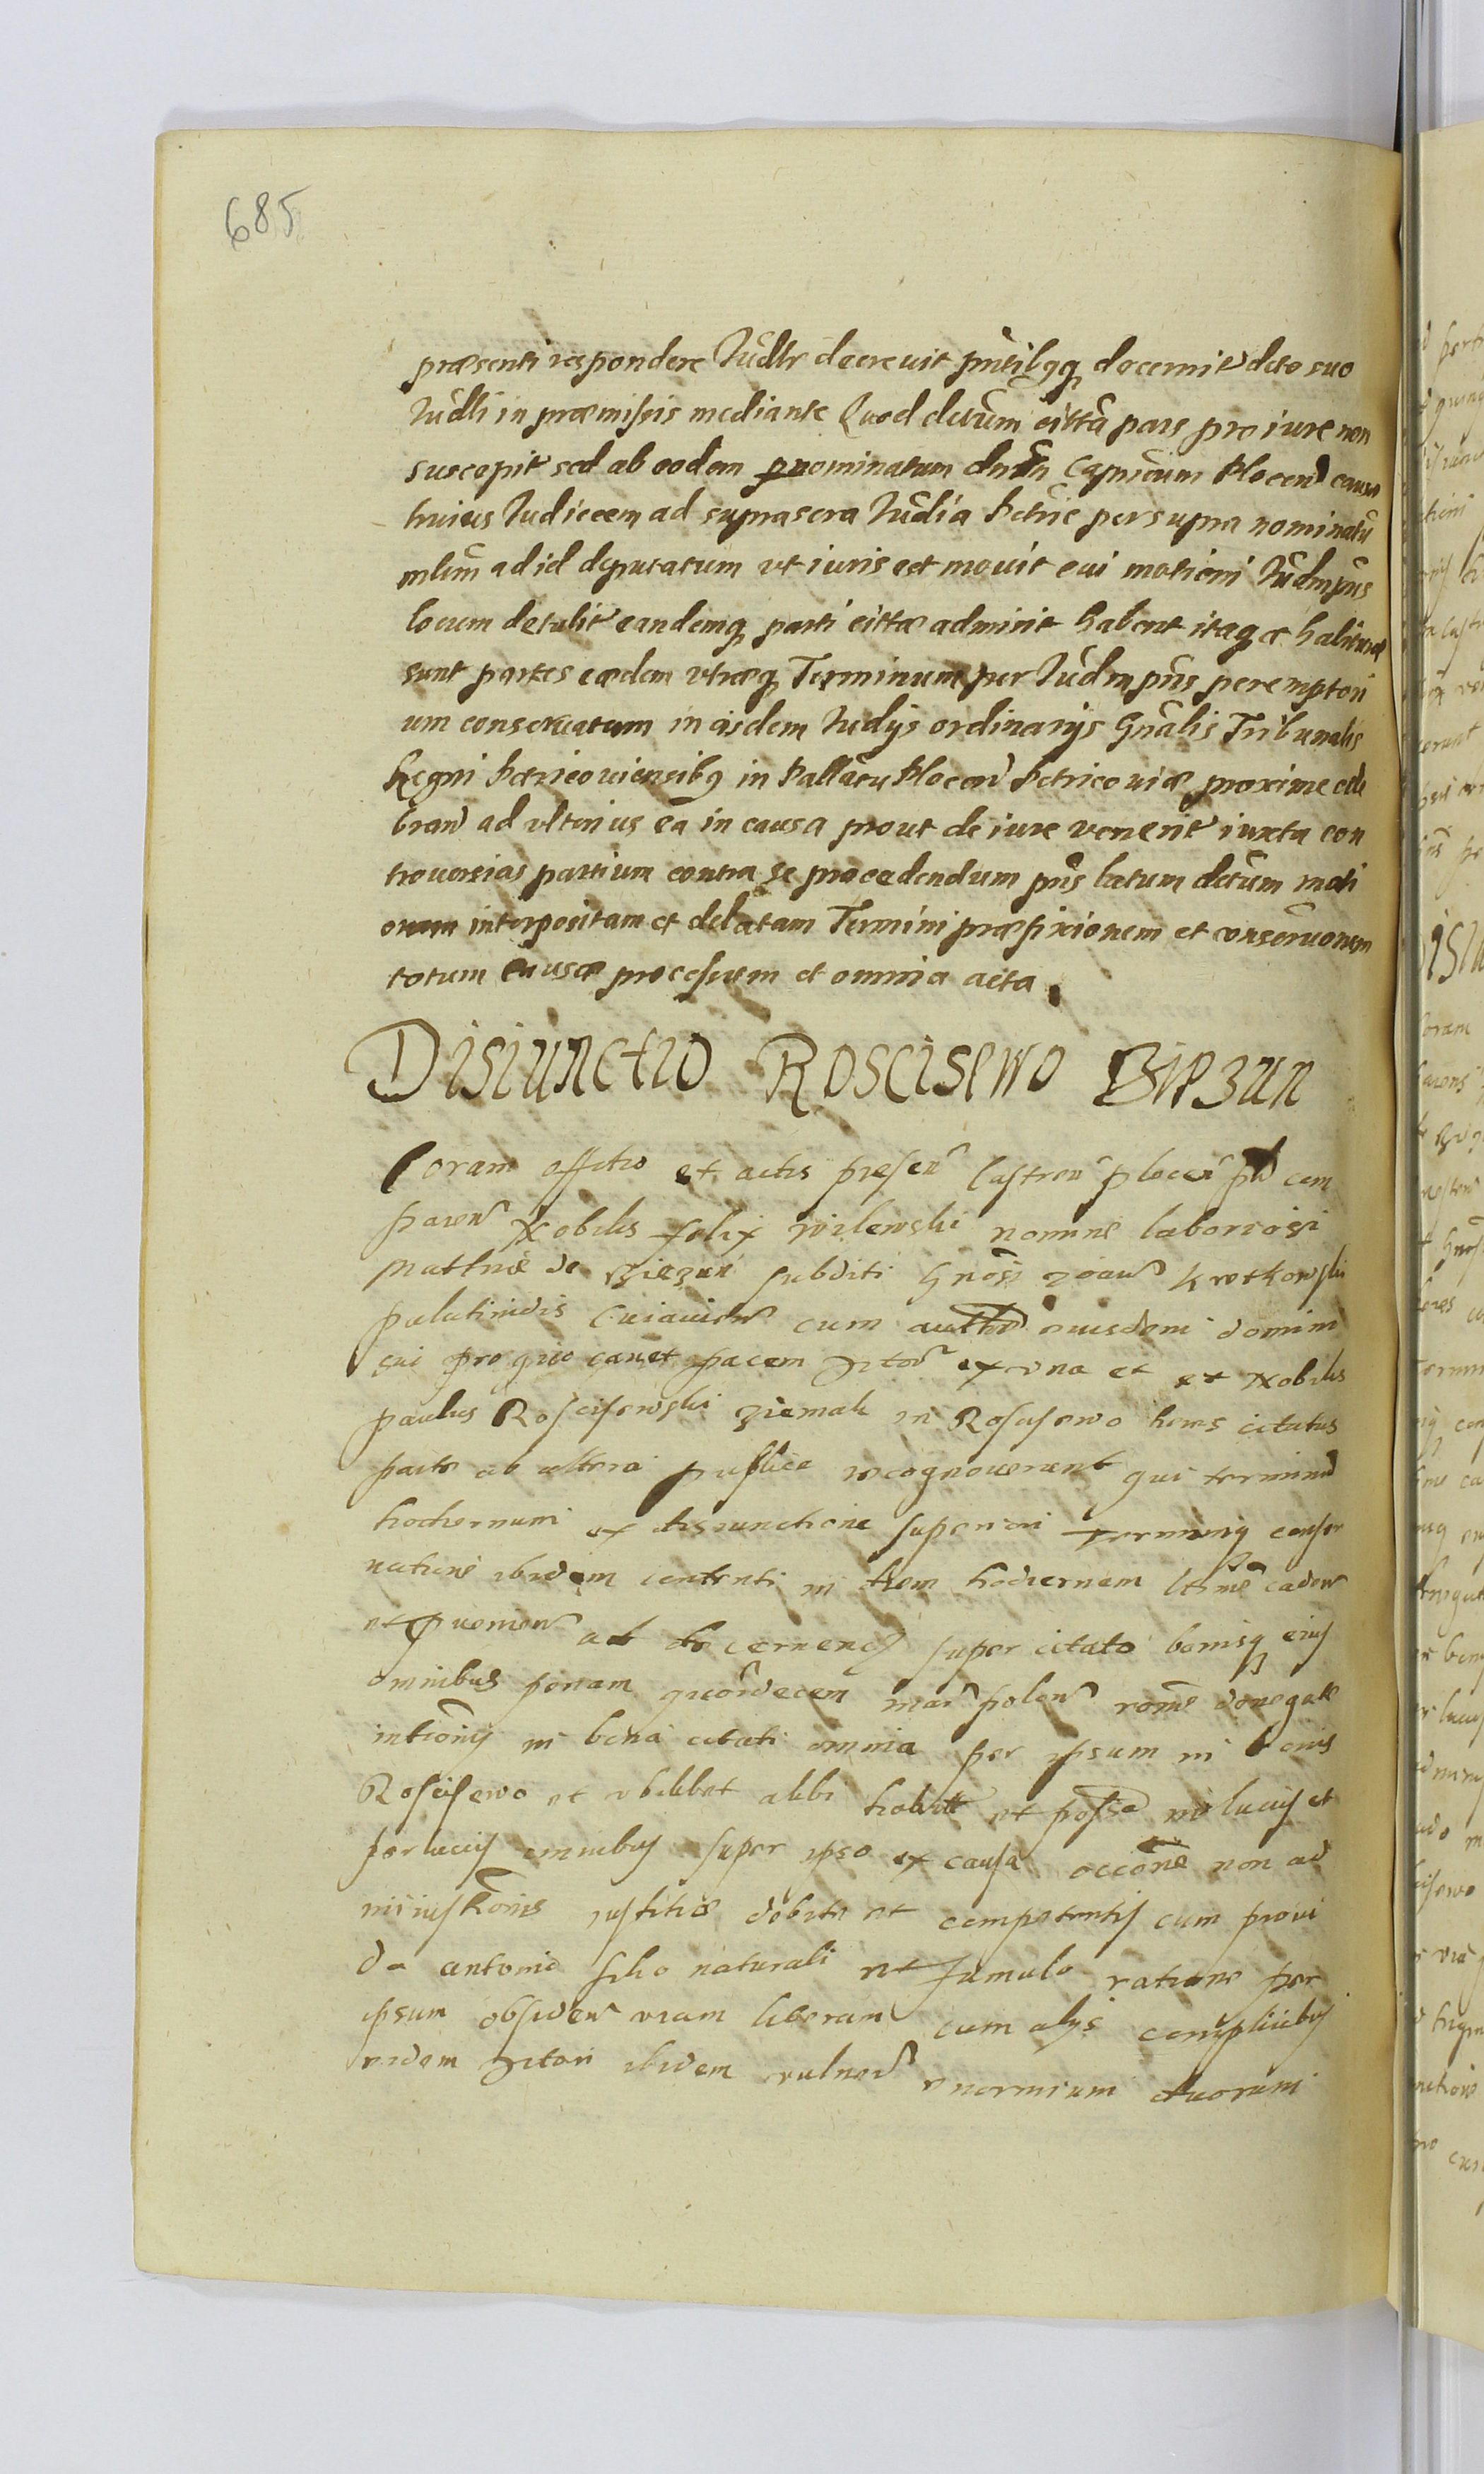 685
præsenti respondere Iudłr decrevit pñtibusq decernit dcto suo
Iudli in præmissis mediante Quod dctũm citta pars pro iure non
suscepit sed ab eodem prænominatum dnũm Capneum Plocen causæ
huius Iudicem ad suprascra Iudia Petric per supra nominatũ
mlũm ad id deputatum ut iuris est movit cui motioni Iudmpñs
locum detulit eandemq parti cittæ admisit habent itaq et habituræ
sunt partes eædem utræq Terminum per Iudmpñs peremptori
um conservatum in eisdem Iudijs ordinarijs Gñalis Tribunalis
Regni Petricoviensibq in Pallatu Plocen Petricoviæ proxime cele
bran ad ulterius ea in causa prout de iure venerit iuxta con
troversias partium contra se procedendum pñs latum dctũm moti
onem interpositam et delatam Termini præfixionem et conservonem
totum causæ processum et omnia acta.
Disiunctio Roscisewo Biezun
Coram officio et actis presen Castren plocen pñ com
paren Nobilis felix wilewski nomine laboriosi
Matthie de Biezun subditi Gnosi Joan Krotkowski
palatinidis Cuiavien cum ausdem domini
sui pro quo cavet pacem Actor ex una et et Nobilis
paulus Roscisewski ziemak in Roscisewo heres citatus
parte ab altera publice recognoverunt qui terminũ
hodiernum ex disiunctione superiori terminiq conser
natione ibidem contenti in diem hodiernam ltime caden
et pvenien ad decernen super citato bonisq eius
omnibus penam quordecem mar polon rone denegate
intromis in bona citati omnia per ipsum in bonis
Roscisewo et ubilibet alibi habit et possa in lucris et
perlucris omnibus super ipso ex causa occone non ad
ministronis iustitiæ debite et competentis cum provi
do antonio filio naturali et famulo ratione per
ipsum obsiden viam liberam cum alijs complicibus
eidem Actori ibidem vulner enormium duorum